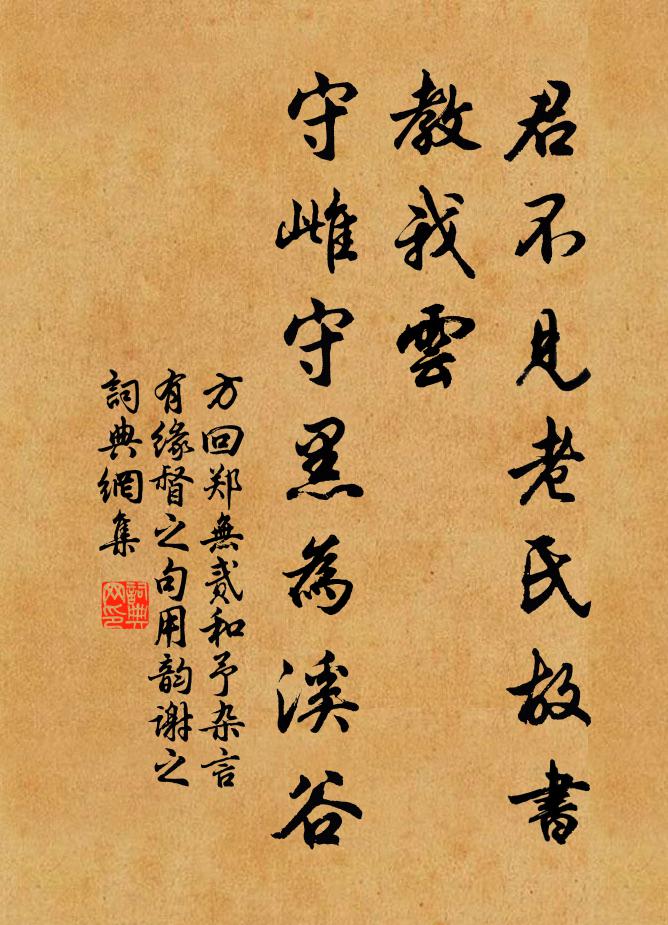 君不見老氏故書
教我雲
守雌守黑為溪谷
方回郑無贰和予杂言
有缘督之句用韵谢之
詞典網集
詞典
网印